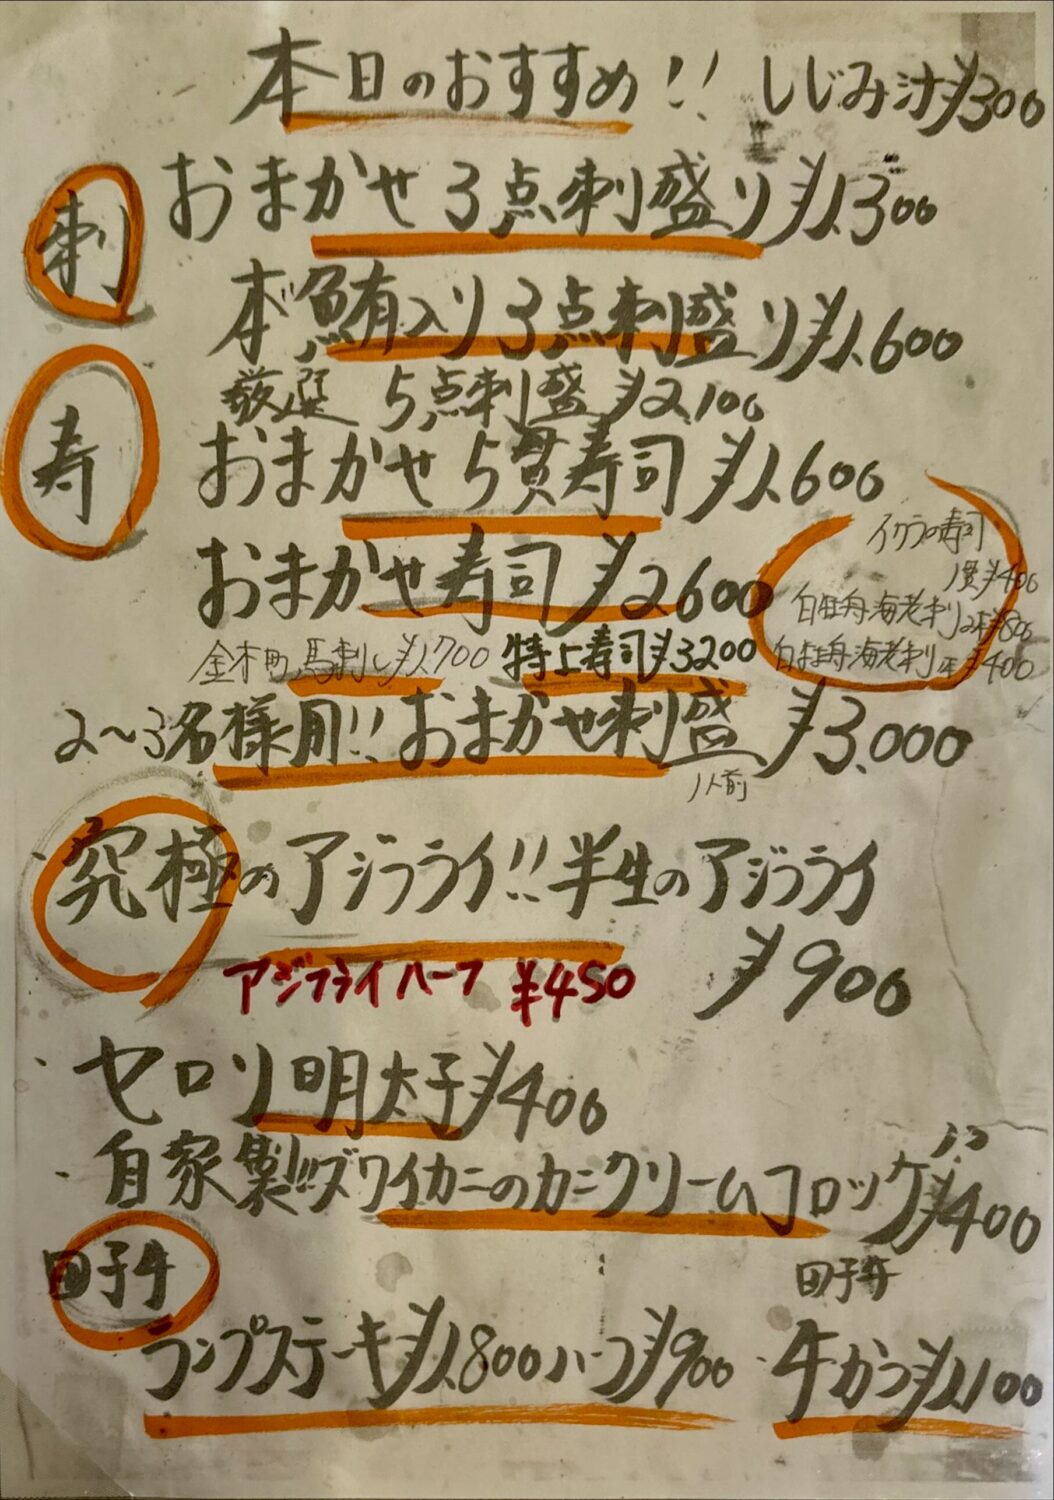 本日のおすすめ!! しじみ汁¥300
刺 おまかせ3点刺盛り¥1,300
本鮪入り3点刺盛り¥1,600
厳選 5点刺盛 ¥2,100
寿 おまかせ5貫寿司¥1,600
おまかせ寿司¥2600
イクラの寿司
1貫¥400
白牡丹海老刺
白牡丹海老刺 ¥400
金木町 馬刺し¥1,700 特上寿司¥3200
2〜3名様用!!おまかせ刺盛 ¥3,000
1人前
究極のアジフライ!!半生のアジフライ
¥900
アジフライハーフ ¥450
セロリ明太子¥400
自家製!!ズワイカニのカニクリームコロッケ¥400
田子牛 田子牛
ランプステーキ¥1,800ハーフ¥900 牛かつ¥1,100